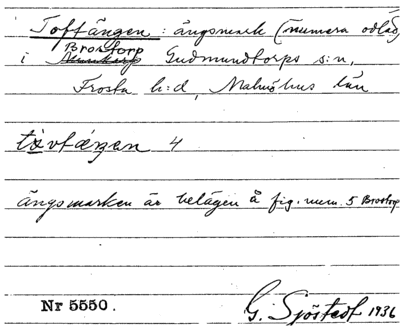 Toftängen: ängsmark (numera odlad)
i Brostorp Gudmundtorps s:n,
Frosta h:d, Malmöhus län
4
ängsmarken är belägen å fig. num. 5 Brostorp
Nr 5550.
G. Sjöstedt 1936